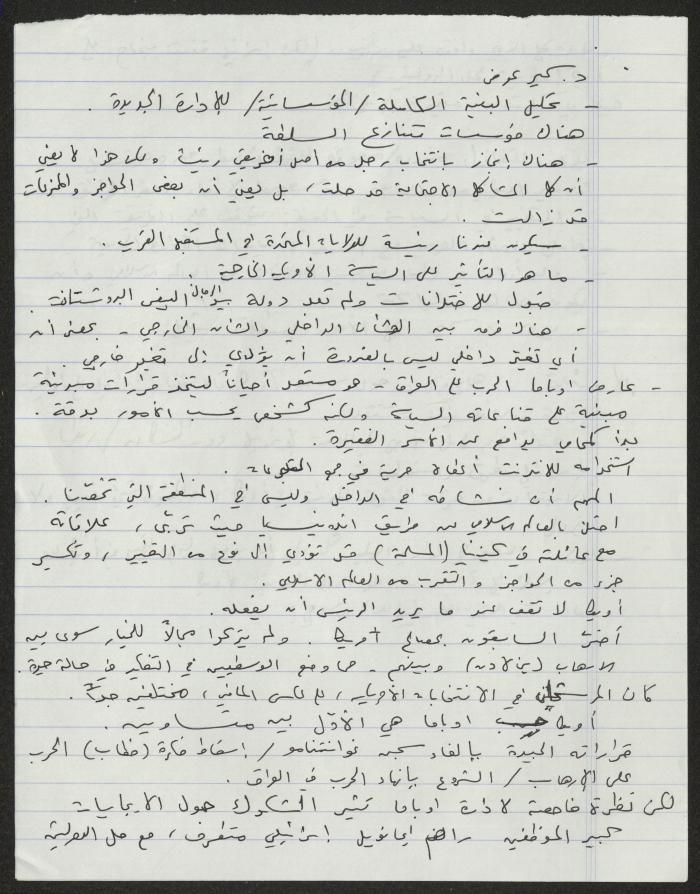 د. سمير عوض
- تحليل البنية الكاملة / المؤسساتية / للإدارة الجديدة .
هناك مؤسسات تتنازع السلطة
- هناك إنجاز بانتخاب رجل من أصل افريقي رئيسة ولكن هذا لا يعني
أن كل المشاكل الاجتماعية قد حلت، بل يعني أن بعض الحواجز والمحرمات
قد زالت .
- سيكون عندنا رئيسة للولايات المتحدة في المستقبل القريب .
- ما هو التأثير على السياسة الأمريكية الخارجية .
قبول للاختلافات ولم تعد دولة الرجال البيض البروتستانت .
- هناك فرق بين الشأن الداخلي والشأن الخارجي - بمعنى أن
أي تغيّر داخلي ليس بالضرورة أن يؤدي إلى تغيّر خارجي
- عارض اوباما الحرب على العراق - هو مستعد أحياناً ليتخذ قرارات مبدئية
مبنية على قناعاته السياسية ولكنه كشخص يحسب الأمور بدقة .
بدأ كمحامي يدافع عن الأسر الفقيرة .
استخدامه للانترنت أعطاه حرية في جمع .
المهم أن نشاطه في الداخل وليس في المنطقة التي تخصّنا .
احتك بالعالم الاسلامي عن طريق اندونيسيا حيث تربّى، علاقاته
مع عائلته في كينيا (المسلمة) قد تؤدي إلى نوع من التغيير، وتكسير
جزء من الحواجز والتقرب من العالم الاسلامي .
أمريكا لا تقف عند ما يريد الرئيس أن يفعله .
أضرّ السابقون بمصالح أمريكا . ولم يتركوا مجالاً للخيار سوى بين
الارهاب (بن لادن) وبينهم - مما وضع الوسطيين في التفكير في حالة حيرة .
كان المرشحان في الانتخابات الأمريكية، على عكس الماضي، مختلفين جداً .
أمريكا اوباما هي الأوّل بين متساوين .
قراراته الجيدة بإلغاء سجن غوانتنامو / إسقاط فكرة (خطاب) الحرب
على الإرهاب / الشروع بإنهاء الحرب في العراق .
لكن نظرة فاحصة لادارة اوباما تثير الشكوك حول الايجابيات
كبير الموظفين راهم ايمانويل إسرائيلي متطرف، مع حل الدولتين